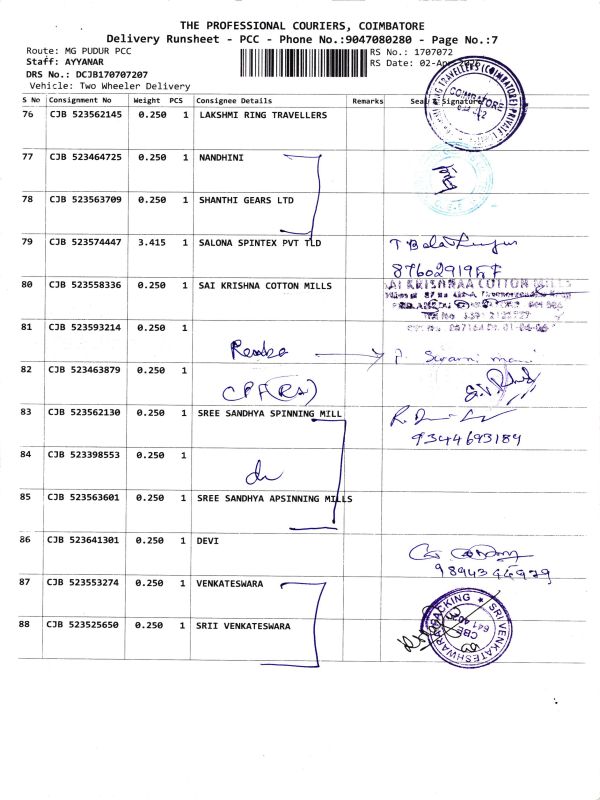 THE PROFESSIONAL COURIERS, COIMBATORE
Delivery Runsheet - PCC - Phone No.:9047080280 - Page No.:7
Route: MG PUDUR PCC RS No.: 1707072
Staff: AYYANAR RS Date: 02-Apr
DRS No.: DCJB170707207
Vehicle: Two Wheeler Delivery
S No Consignment No Weight PCS Consignee Details Remarks Seal & Signature
76 CJB 523562145 0.250 1 LAKSHMI RING TRAVELLERS
RING TRAVELLERS (COIMBATORE) PRIVATE
COIMBATORE
77 CJB 523464725 0.250 1 NANDHINI
78 CJB 523563709 0.250 1 SHANTHI GEARS LTD
79 CJB 523574447 3.415 1 SALONA SPINTEX PVT TLD
80 CJB 523558336 0.250 1 SAI KRISHNA COTTON MILLS
SAI KRISHNAA COTTON MILLS
81 CJB 523593214 0.250 1
P. Swami mani
82 CJB 523463879 0.250 1
83 CJB 523562130 0.250 1 SREE SANDHYA SPINNING MILL
9344693189
84 CJB 523398553 0.250 1
85 CJB 523563601 0.250 1 SREE SANDHYA APSINNING MILLS
86 CJB 523641301 0.250 1 DEVI
87 CJB 523553274 0.250 1 VENKATESWARA
88 CJB 523525650 0.250 1 SRII VENKATESWARA
SRI VENKATESHWARA PACKING
CBE
641 402